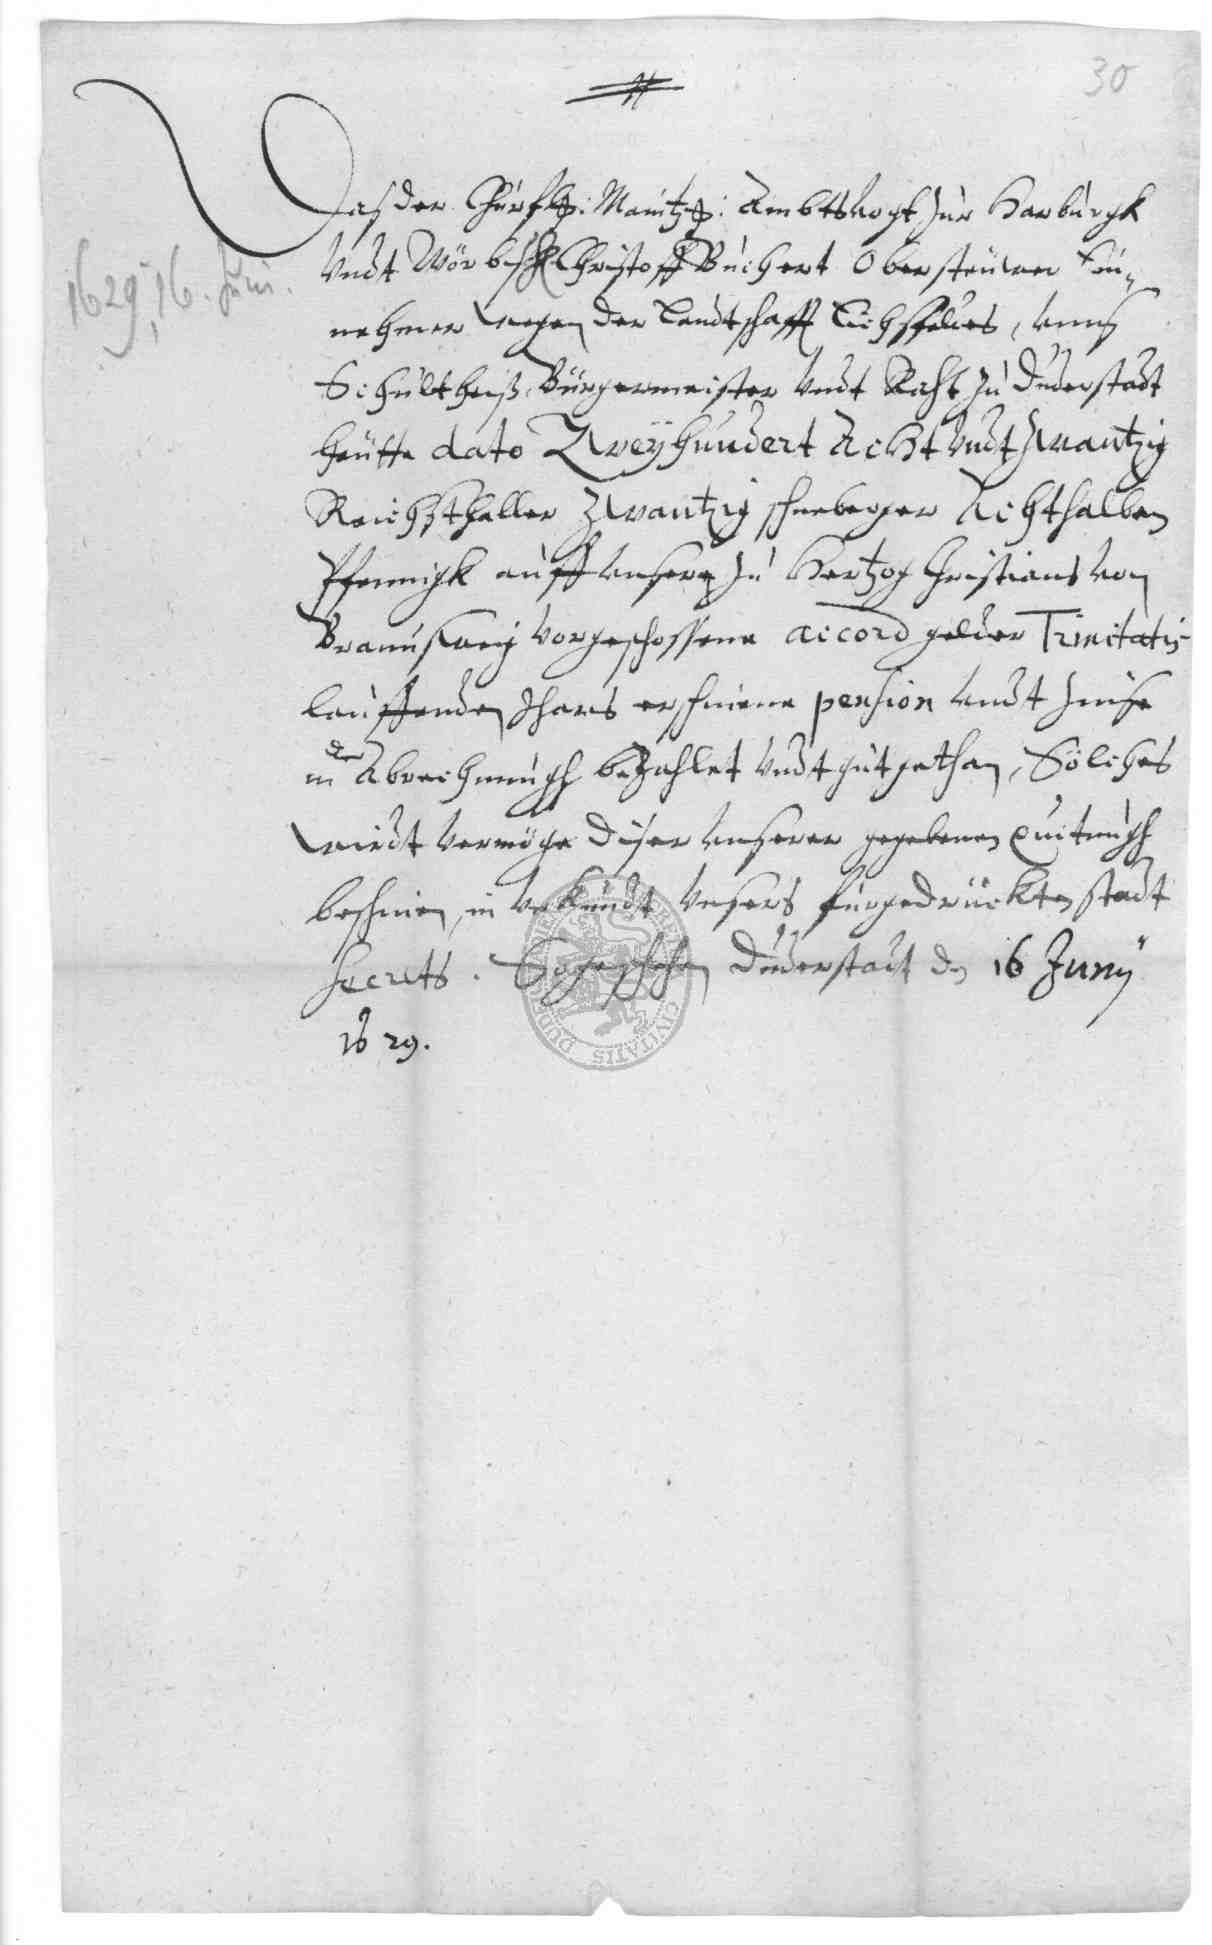 30
1629, 16. Juni.
Das der Churfl: Maintz: Ambtsvogt zur Harburgk
Undt Wörbiß Christoff Buchert Obersteuren Ein„
nehmer wegen der Landtschafft Eichsfeldes, unns
Schültheiß, Bürgermeister Undt Raht zu Duderstadt
heutte dato Zweÿhundert Acht undt zwantzig
Reichsthaller zwantzig schneberger Achthalben
Pfennigk auff unsere zu Hertzog Christians von
Braunschweig vorgeschossene accord gelder Trinitatis
lauffenden Jhars erschinene pension undt zinse
in der Abrechnungh bezahlet undt gut gethan, Sölches
wirdt vermöge diser unserer gegebenen Quitungh
beschinen, in Uhrkundt unsers fürgedrückten Stadt
Secrets. So geschehen Duderstadt den 16 Junÿ
1629.
CIVITATIS DUDE